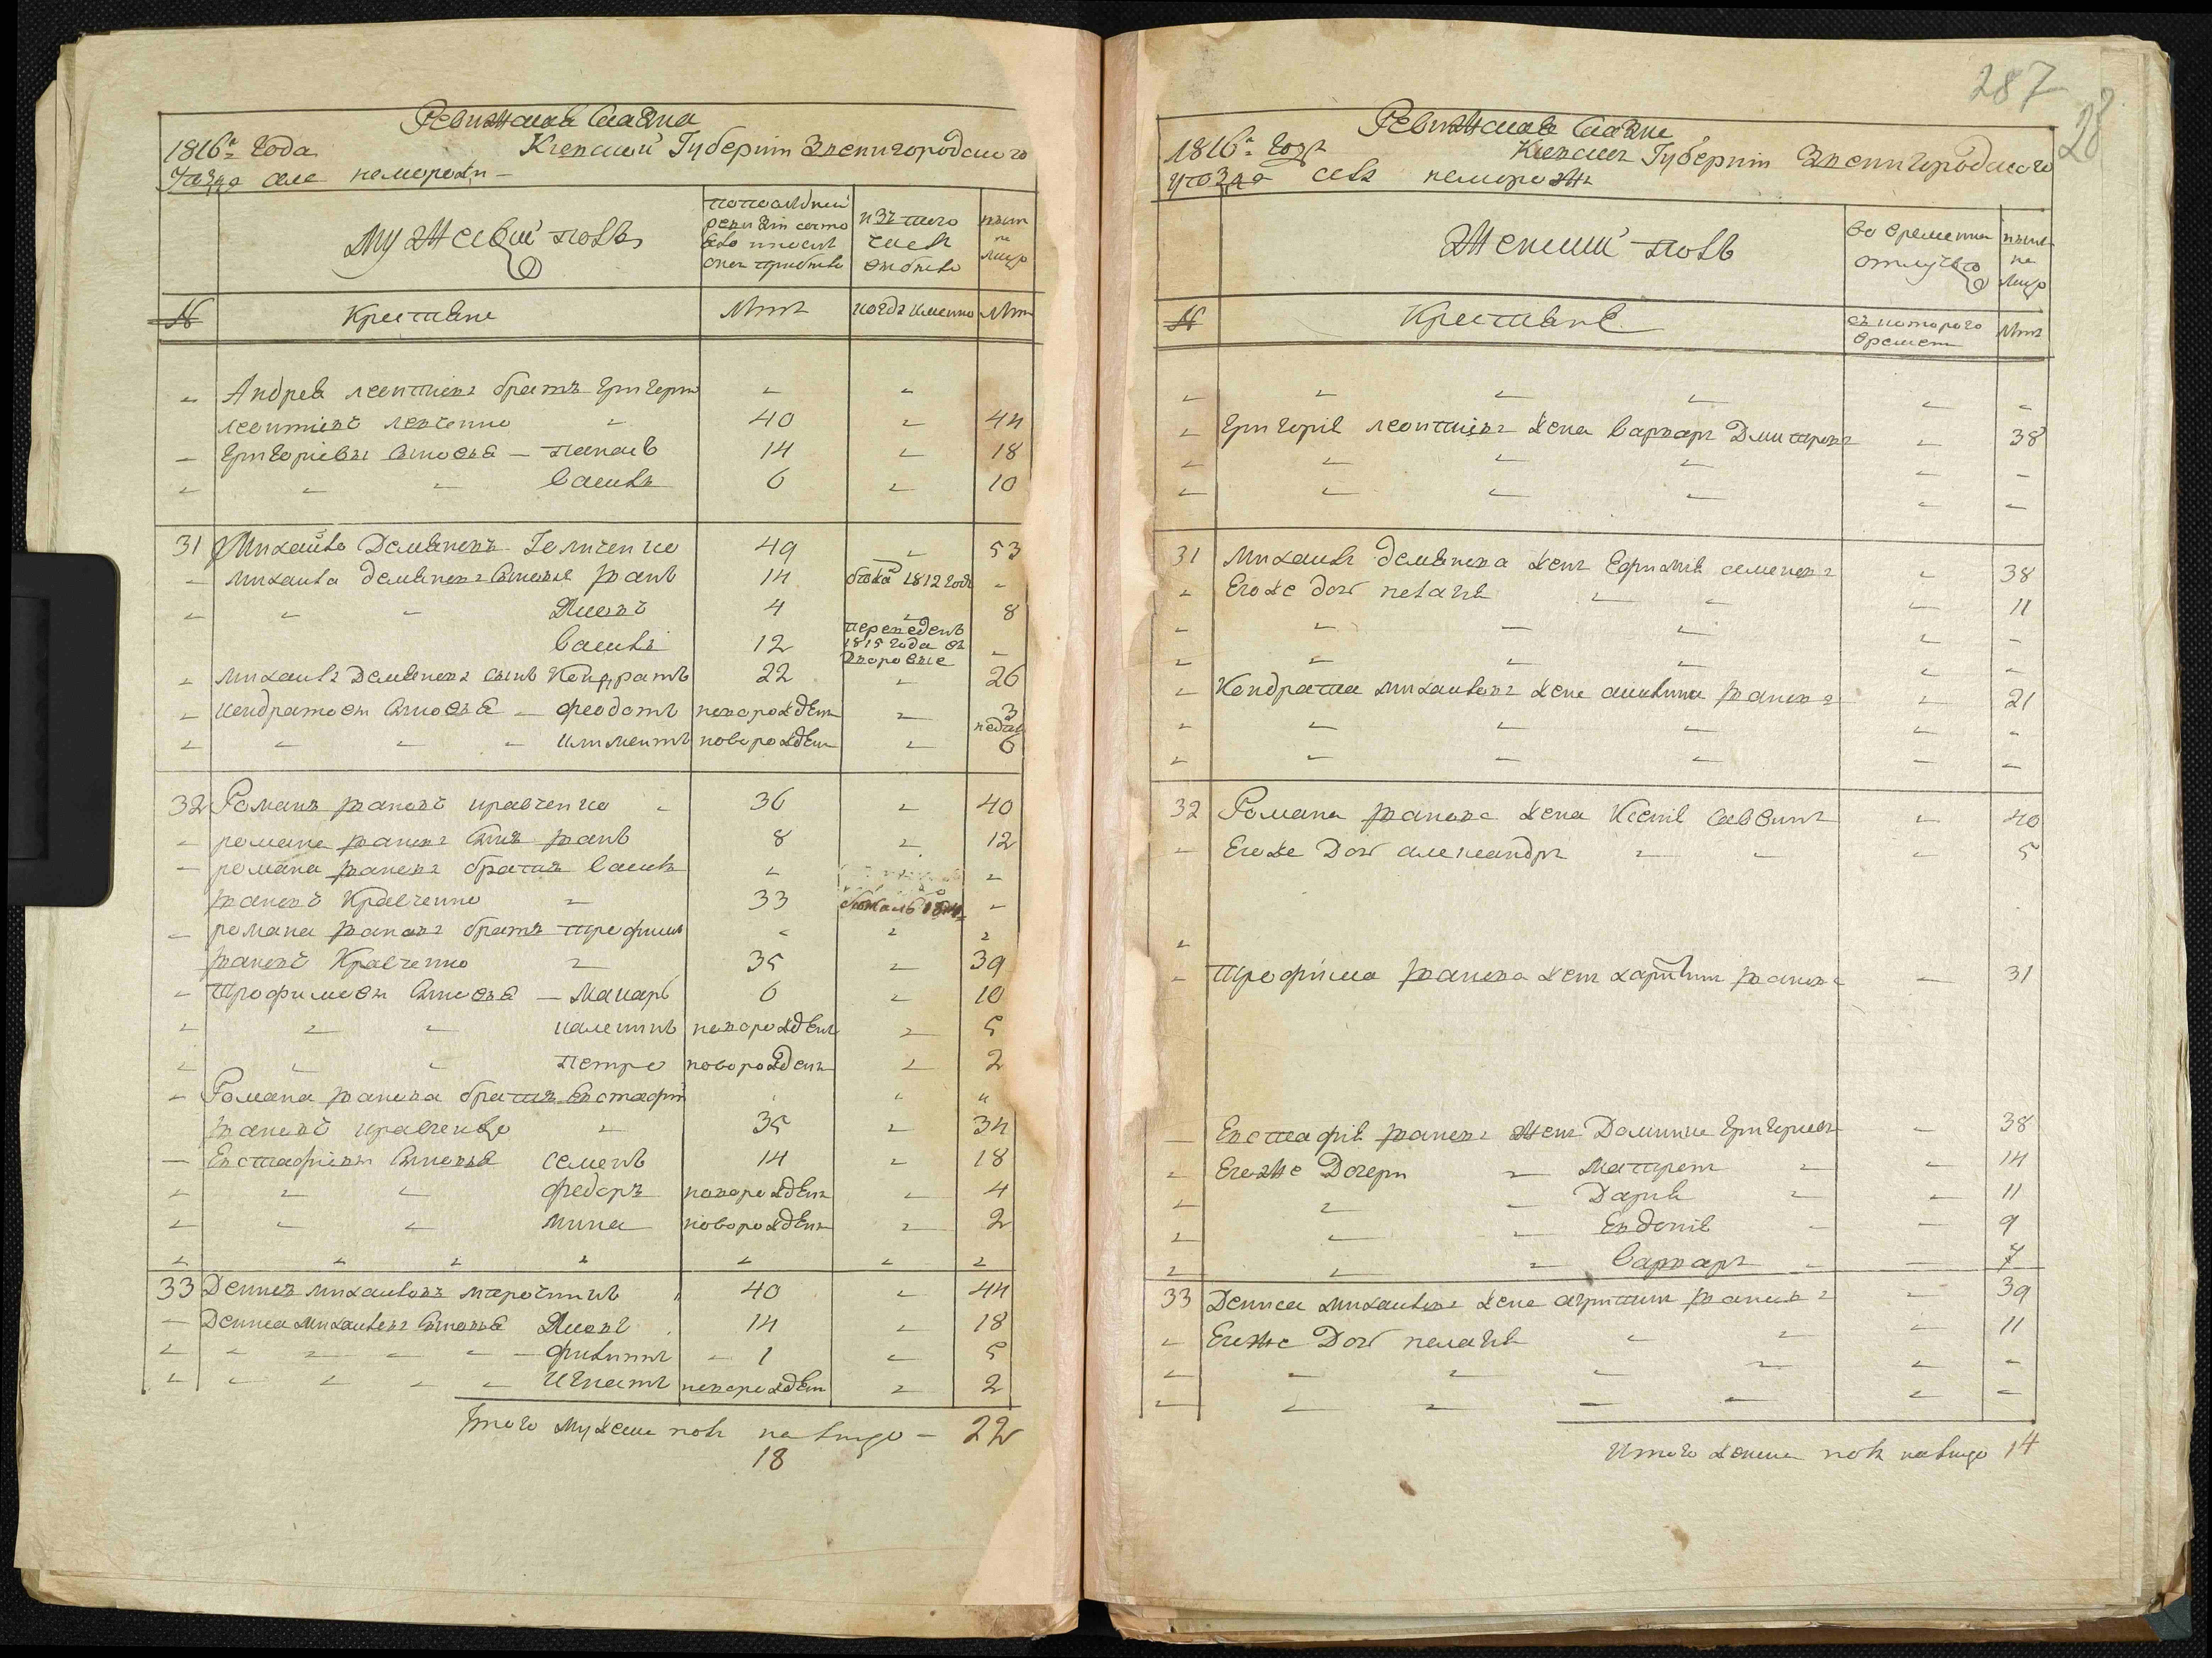 Ревизская Сказка
1816го Года Киевской Губернии Звенигородского
Уезда села неморожи
Мужеский полъ
изъ того числа выбыло
ныне на лицо
№ Крестяне Лета когда именно Лета
Андрея леонтиева братъ григори
леонтиевъ левченко 40 44
григориевы сыновья — панасъ 14 18
василь 6 10
31 Михайло Демяновъ Величенко 49 53
михаила демянова сыновья иванъ 14 бежалъ 1812 года
Яковъ 4 8
василь 12 переведенъ 1815 года въ дворовые
михаила Демянова сынъ Кондратъ 22 26
кондратовы сыновья — феодотъ новорожденъ 3 недель
климентъ новорожденъ 6
32 Романъ ивановъ кравченко 36 40
романа иванова сынъ иванъ 8 12
романа иванова братъ василь
ивановъ Кравченко 33
романа иванова братъ трофимъ
ивановъ Кравченко 35 39
трофимовы сыновья — макаръ 6 10
новорожденъ 5
петро новорожденъ 2
Романа иванова братъ Евстафий
ивановъ кравченко 35 34
Евстафиевы сыновья семенъ 14 18
федоръ новорожденъ 4
мина новорожденъ 2
33 Денисъ михайловъ 40 44
Дениса михайлова сыновья Яковъ 14 18
филиппъ 1 5
игнатъ новорожденъ 2
Итого мужеска полу на лицо — 22
18
287
28
Ревизская Сказка
1816го Года Киевской Губернии Звенигородского
уезда села неморожи
Женский полъ
во временной отлучке
ныне на лицо
№ Крестяне съ которого времени Лета
григория леонтиева жена варвара Дмитрова 38
31 михаила демянова жена Ефимия семенова 38
Его же дочь пелагия 11
Кондрата михайлова жена акилина иванова 21
32 Романа иванова жена Ксения саввина 40
Его же Дочь александра 5
трофима иванова жена иванова 31
Евстафия иванова жена Домникия григориева 38
Его же Дочери матрена 14
Дария 11
Евдокия 9
варвара 7
33 Дениса михайлова жена иванова 39
Его же Дочь пелагия 11
Итого женска полу на лицо 14